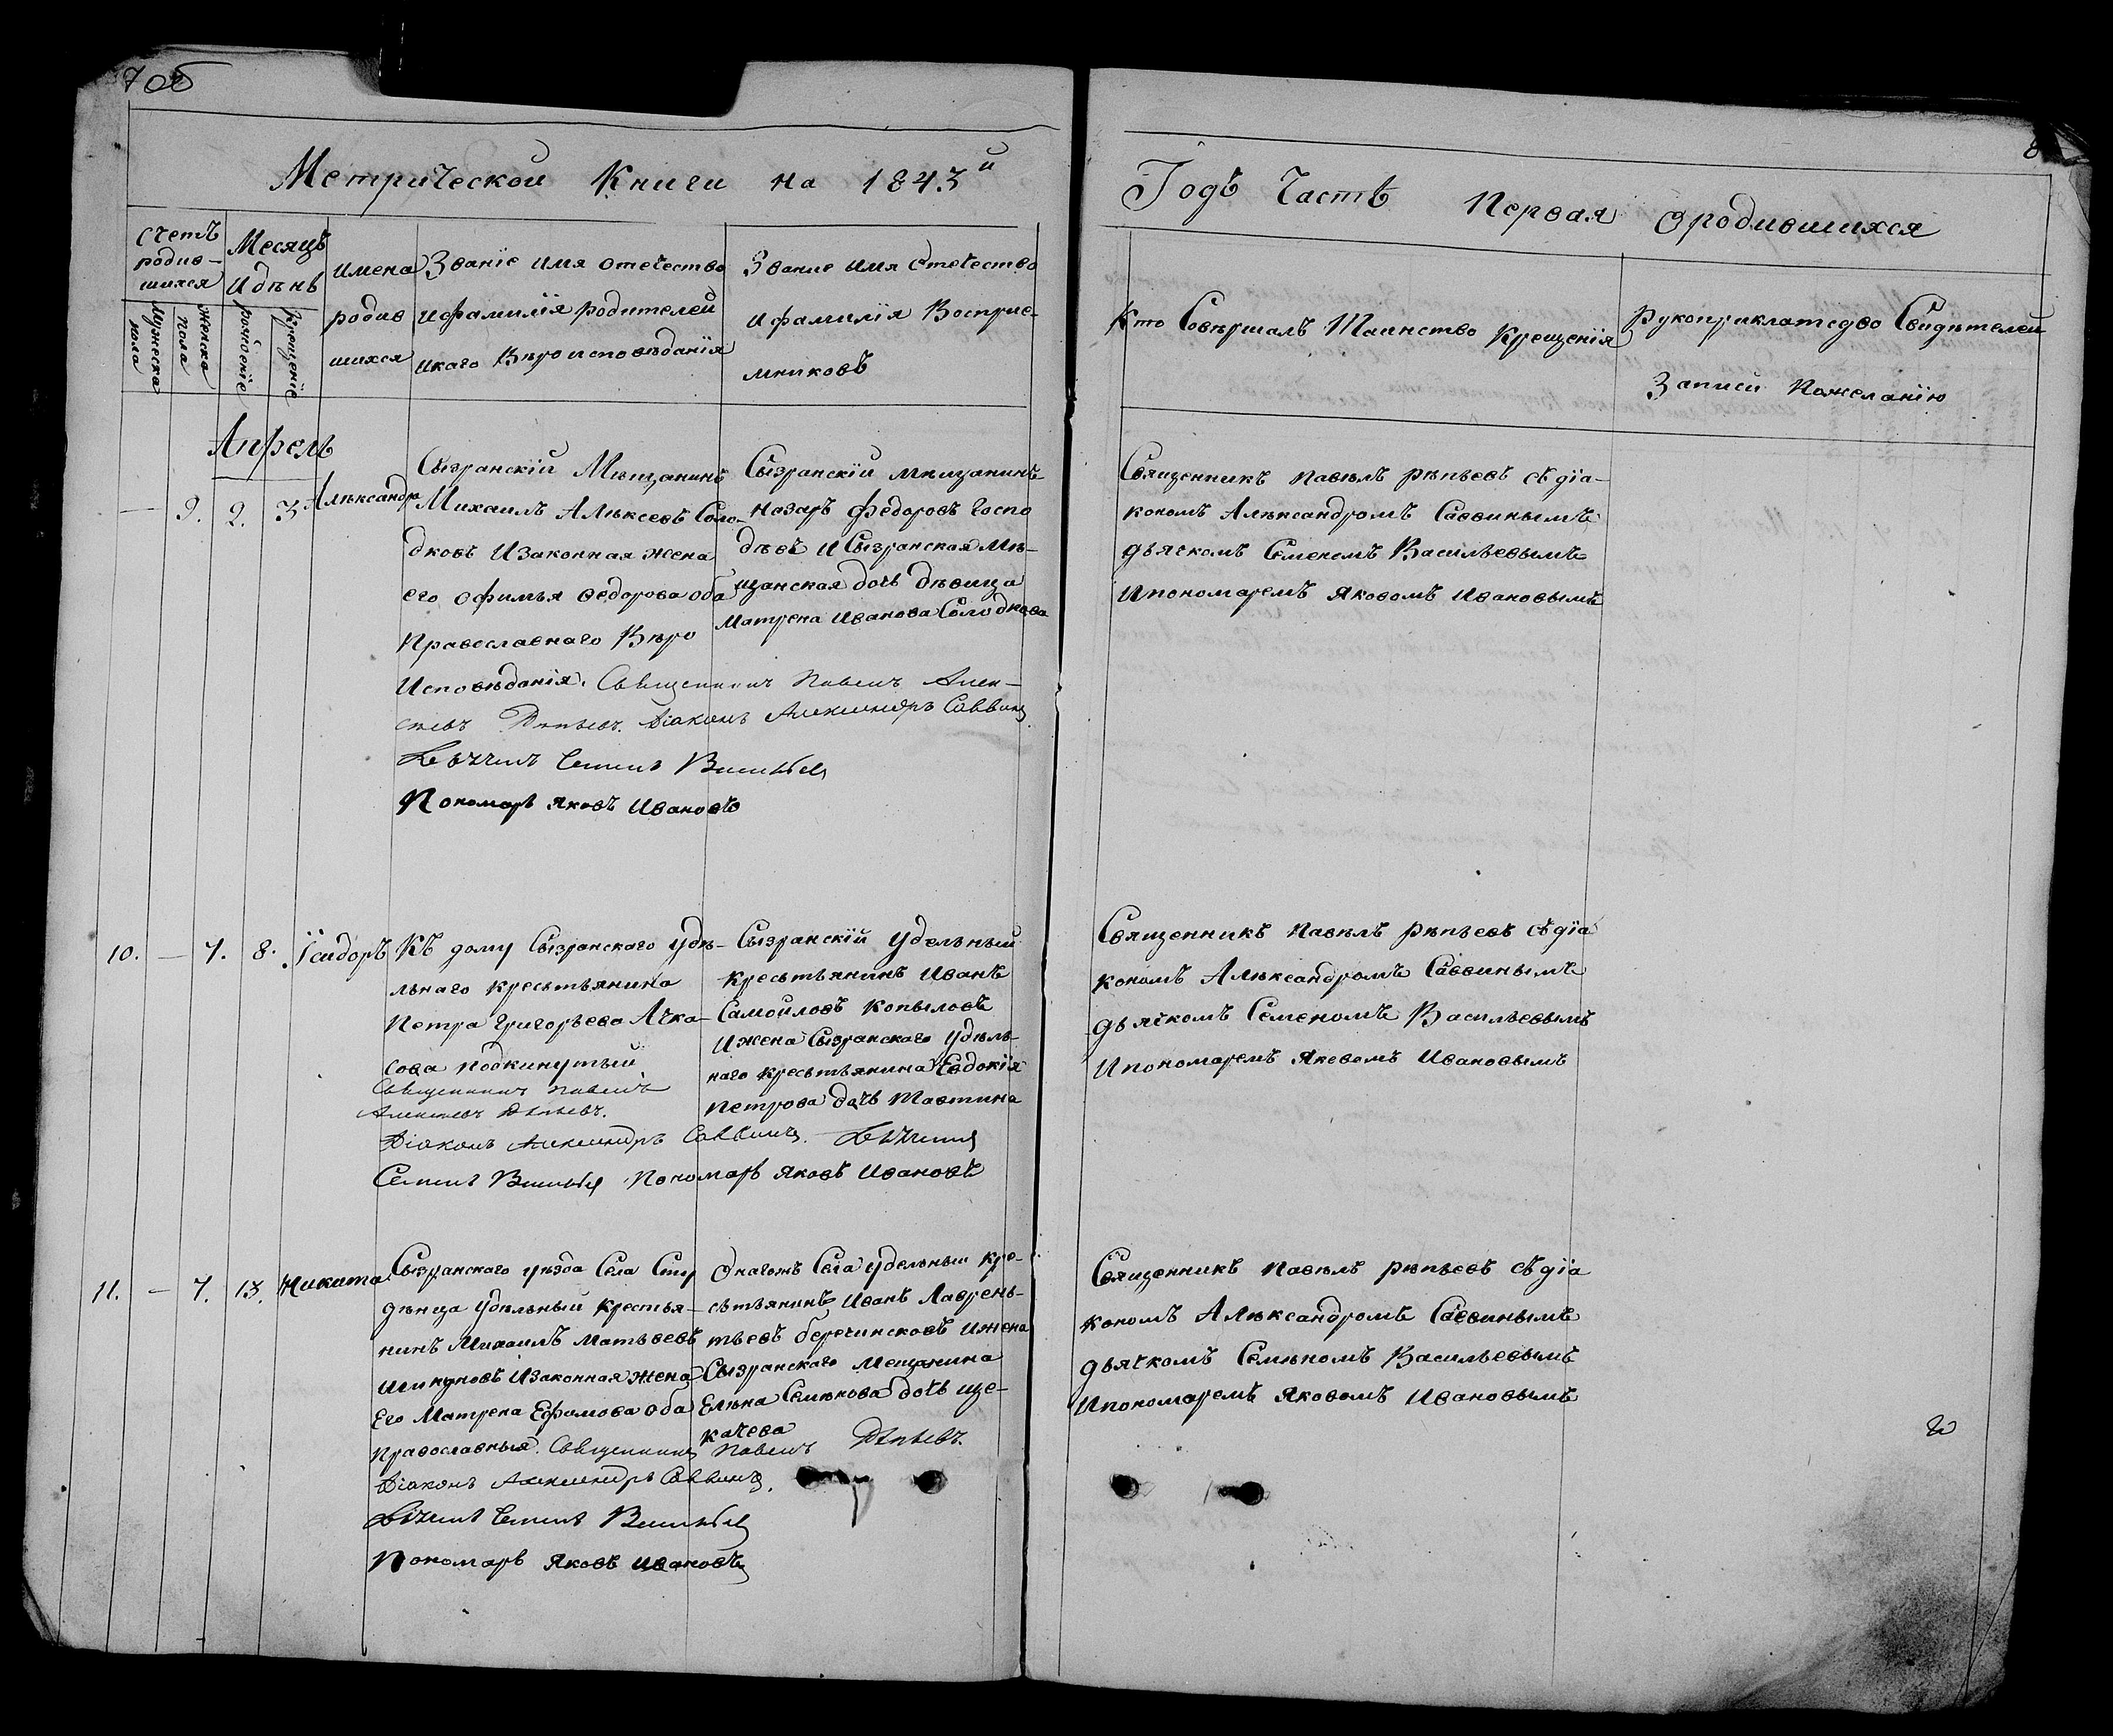 7 об
8
Метрической Книги на 1843й
Годъ Часть Первая о родившихся
Счетъ родив-
шихся
Мужеска пола
Женска пола
Месяцъ
И днь
рождение
Крещение
имена
родив
шихся
Званіе имя отечество
и фамиліѧ родителей
и каго Вѣроисповѣданія
Звание имя Отечество
и фамилія Восприе-
мниковъ
Кто Совѣршалъ Таинство Крещенія
Рукоприклатсдво Свидѣтелей
Записи Пожеланію
Апрель
— 9. 2. 3 Алѣксандра
Сызранскій Мѣщанинъ
Михаилъ Алѣксеѣвъ Соло-
дковъ И законная жена
его Офимья Федорова оба
Православнаго Вѣро
Исповѣданія. Священникъ Павелъ Алек-
сѣевъ Рѣпьевъ. Діаконъ Александръ Саввинъ
Дьячекъ Семенъ Васильевъ
Пономарь Яковъ Ивановъ
Сызранскій мѣщанинъ
Назаръ Федоровъ Госпо
дѣвъ И Сызранская Мѣ-
щанская дочь дѣвица
Матрена Иванова Солодкова
Священникъ Павѣлъ рѣпьевъ съ діа-
кономъ Алѣксандромъ Саввинымъ
дьячкомъ Семеномъ Васильевымъ
И пономаремъ Яковомъ Ивановымъ
10. — 7. 8. Ісидоръ
Къ дому Сызранскаго удѣ-
льнаго кресьтьянина
Петра Григорьева Ачка-
сова подкинутый
Священникъ Павелъ
Алексѣевъ Рѣпьевъ.
Діаконъ Александръ Саввинъ. Дьячекъ
Семенъ Васильевъ Пономарь Яковъ Ивановъ
Сызранскій удельный
кресьтьянинъ Иванъ
Самойловъ Копыловъ
И жена Сызранскаго удѣль-
наго кресьтьянина Евдокія
Петрова дачь Тавтина
Священникъ Павѣлъ рѣпьевъ съ діа
кономъ Алѣксандромъ Саввинымъ
дьячкомъ Семеномъ Васильевымъ
И пономаремъ Яковомъ Ивановымъ
11. — 7. 13. Никита
Сызранскаго уѣзда Села Сту
дѣнца удѣльный крестья-
нинъ Михаилъ Матьвеевъ
И законная жена
Его Матрена Ефимова оба
православныя. Священникъ Павелъ Рѣпьевъ.
Діаконъ Александръ Саввинъ.
Дьячекъ Семенъ Васильевъ
Пономарь Яковъ Ивановъ
Онагожъ Села удельный кре-
сьтьянинъ Иванъ Лаврень-
тьевъ беречинсковъ И жена
Сызранскаго Мещанина
Елѣна Семѣнова дочь ще-
качева
Священникъ Павѣлъ рѣпьевъ съ діа
кономъ Алѣксандромъ Саввинымъ
дьячкомъ Семѣномъ Васильевымъ
И пономаремъ Яковомъ Ивановымъ